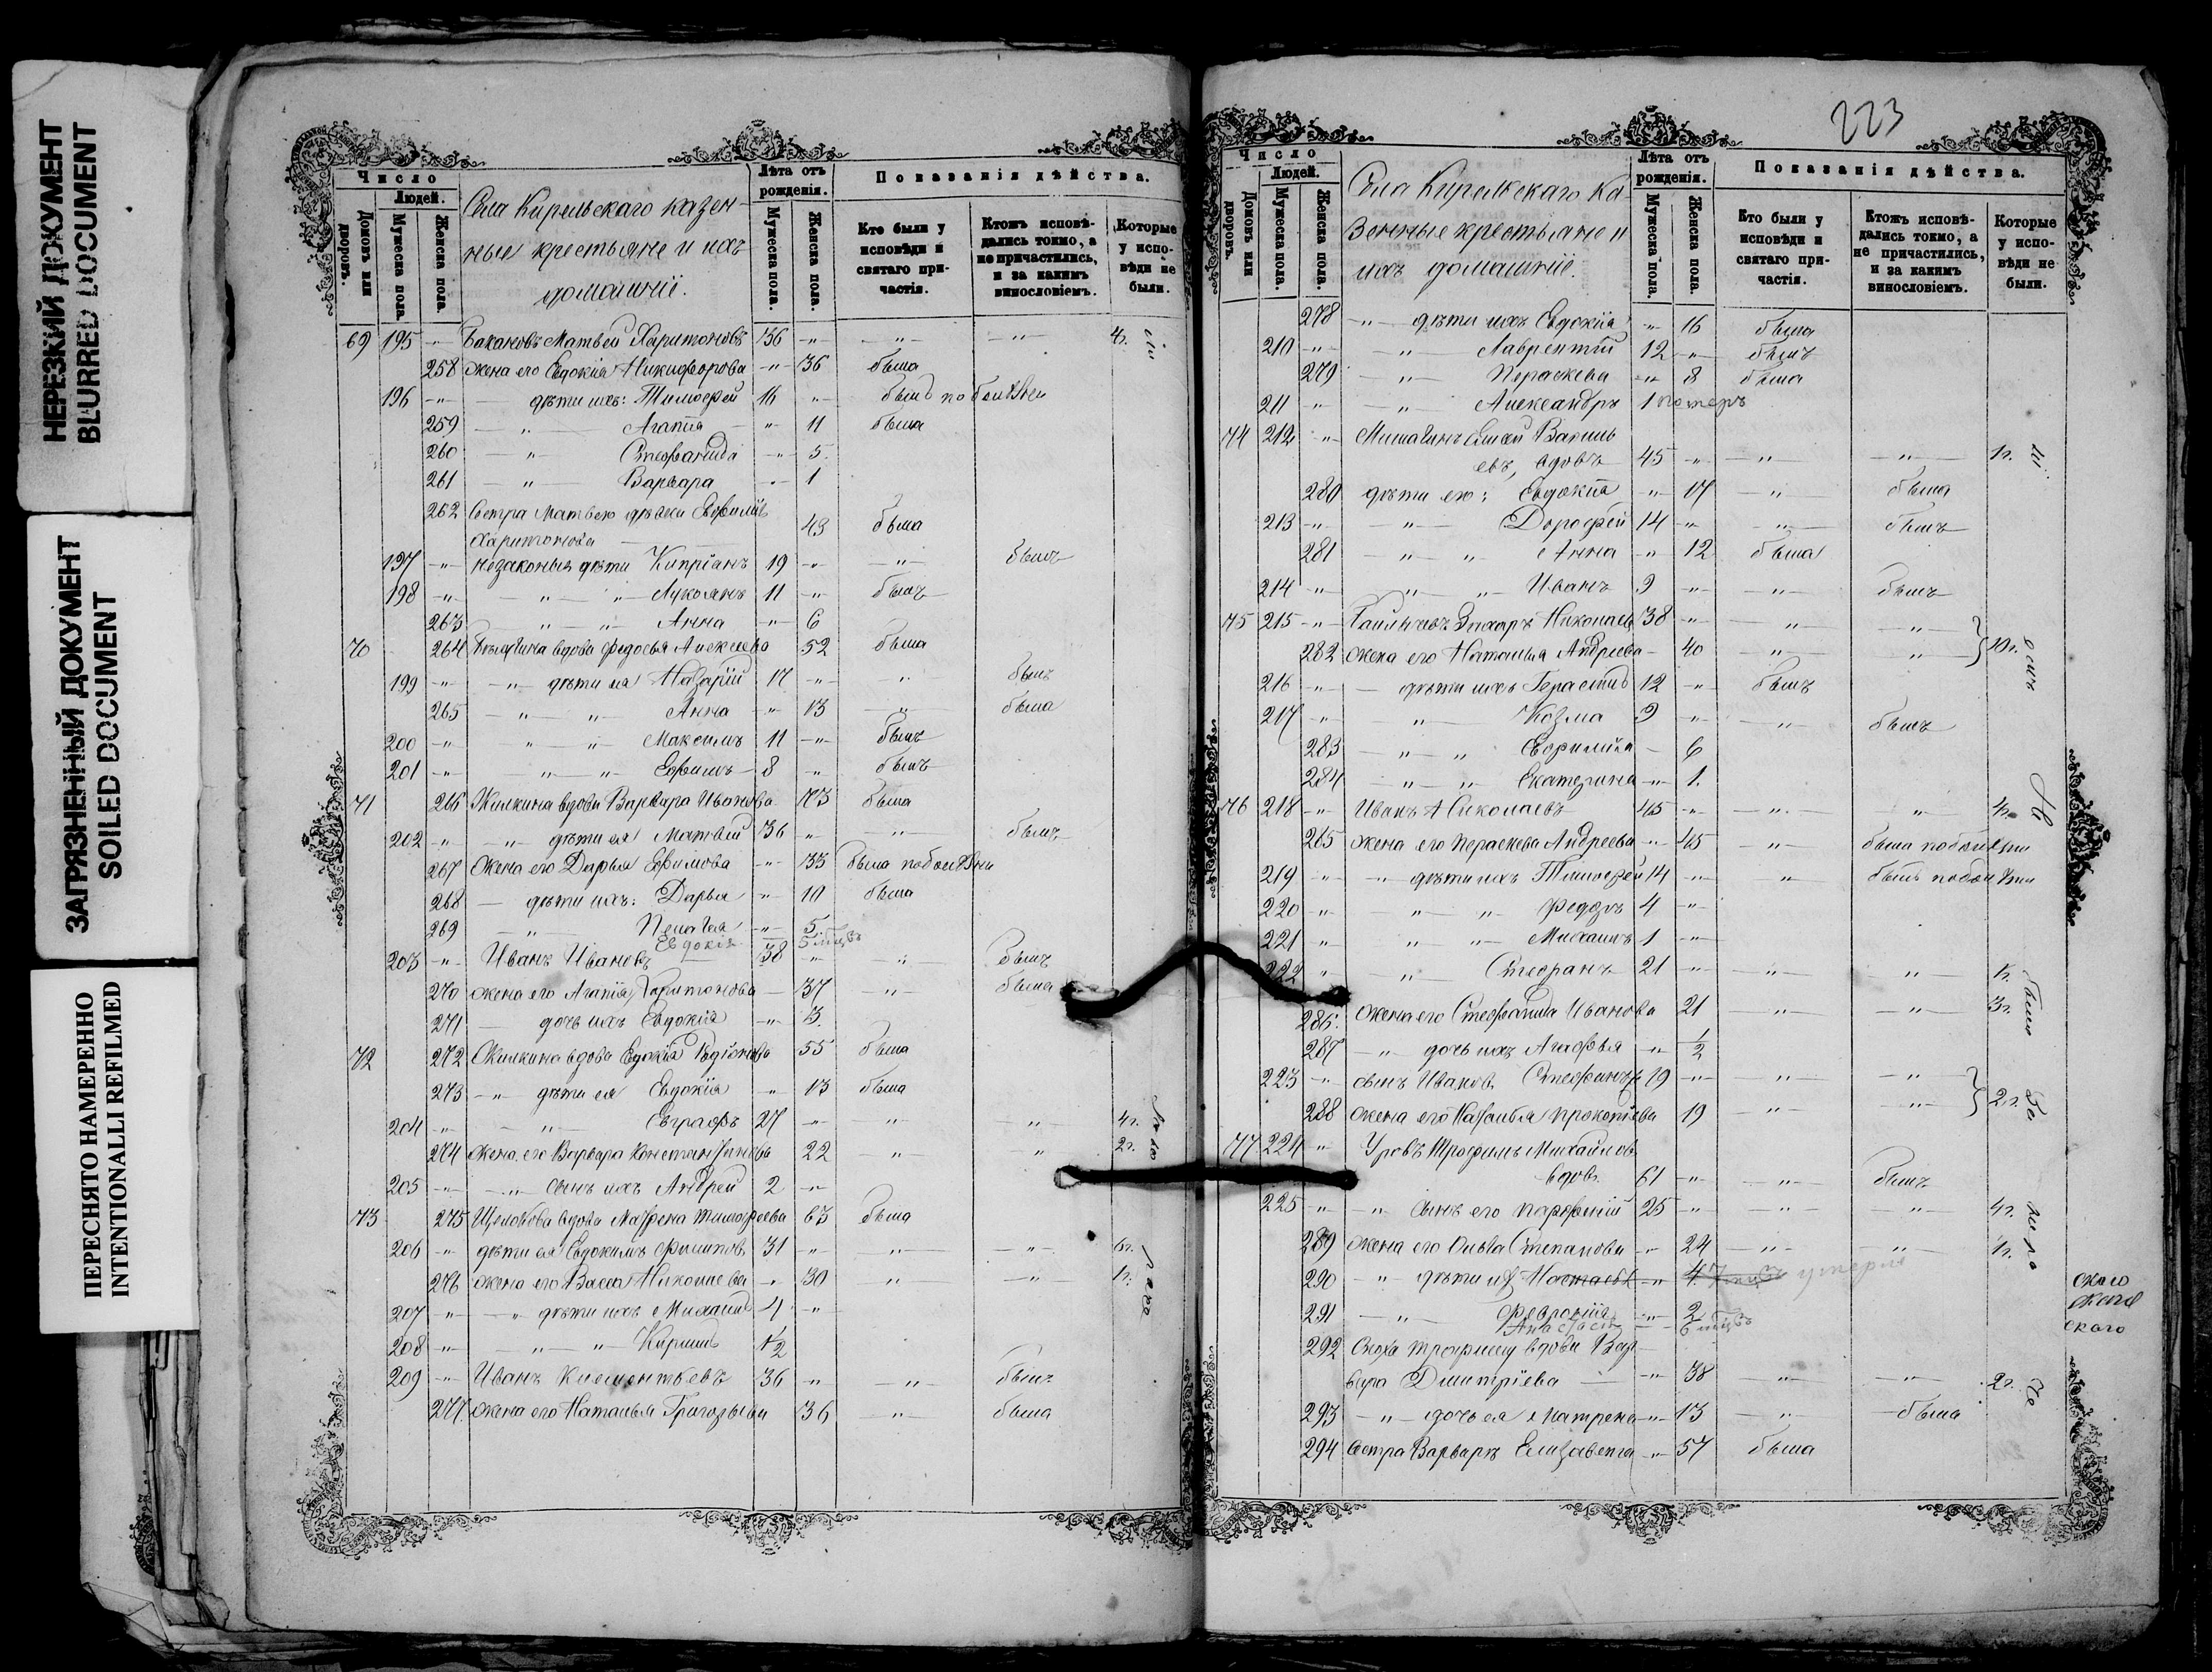 НЕРЕЗКИЙ ДОКУМЕНТ
BLURRED DOCUMENT
ЗАГРЯЗНЕННЫЙ ДОКУМЕНТ
SOILED DOCUMENT
ПЕРЕСНЯТО НАМЕРЕННО
INTENTIONALLI REFILMED
Число
Людей.
Домовъ или дворовъ.
Мужеска пола.
Женска пола.
Села Кирельскаго казен-
ные крестьяне и ихъ
домашніе.
Лѣта отъ рожденія.
Мужеска пола.
Женска пола.
Показанія дѣйства.
Кто были у исповѣди и святаго причастія.
Ктожъ исповѣдались токмо, а не причастились, и за какимъ винословіемъ.
Которые у исповѣди не были.
69 195 -"- Матвей Харитоновъ 36 -"- -"- -"- 4г.
258 жена его Евдокія Никифорова -"- 36 была
196 -"- дѣти ихъ: Тимофей 16 -"- былъ по болѣзни
259 -"- Агапія -"- 11 была
260 -"- Стефанида -"- 5
261 -"- Варвара -"- 1
262 Сестра Матвею Евфимія
Харитонова 43 была
197 -"- незаконыя дѣти Кипріанъ 19 -"- -"- былъ
198 -"- -"- -"- Лукоянъ 11 -"- былъ
263 -"- -"- Анна -"- 6
70 264 вдова Федосья Алексеева 52 была
199 -"- -"- дѣти ея Назарій 17 -"- -"- былъ
265 -"- -"- Анна -"- 13 -"- была
200 -"- -"- -"- Максимъ 11 -"- былъ
201 -"- -"- -"- Ефимъ 8 -"- былъ
71 266 Жилкина вдова Варвара Иванова 73 была
202 -"- -"- дѣти ея Матвей 36 -"- -"- былъ
267 Жена его Дарья Ефимова -"- 33 была по болѣзни
268 дѣти ихъ: Дарья -"- 10 была
269 -"- Пелагея -"- 5
Евдокія 5 мцвъ
203 -"- Иванъ Ивановъ 38 -"- -"- былъ
270 жена его Агапія Харитонова 37 -"- была
271 дочь ихъ Евдокія -"- 3.
72 272 Жилкина вдова Евдокія Родіонова 55 была
273 -"- дѣти ея Евдокія -"- 13 была
204 -"- -"- Евграфъ 27 -"- -"- -"- 4г.
274 жена его Варвара Константинова 22 -"- -"- 2г.
205 -"- -"- сынъ ихъ Андрей 2 -"-
73 275 вдова Матрена Тимофеева 63 была
206 -"- дѣти ея Евдокимъ Филипов. 31 -"- -"- -"- 6г.
276 жена его Васса Николаева -"- 30 -"- -"- 1г.
207 -"- -"- дѣти ихъ Михаилъ 4 -"-
208 -"- -"- -"- Кирилъ 1/2
209 -"- Иванъ Климентьевъ 36 -"- -"- былъ
277 жена его Наталья Григорьева 36 -"- была
223
Число
Людей.
Домовъ или дворовъ.
Мужеска пола.
Женска пола.
Села Кирельскаго Ка-
зенные крестьяне и
ихъ домашніе.
Лѣта отъ рожденія.
Мужеска пола.
Женска пола.
Показанія дѣйства.
Кто были у исповѣди и святаго причастія.
Ктожъ исповѣдались токмо, а не причастились, и за какимъ винословіемъ.
Которые у исповѣди не были.
278 -"- дѣти ихъ Евдокія -"- 16 была
210 -"- -"- Лаврентій 12 -"- былъ
279 -"- Параскева -"- 8 была
211 -"- -"- Александръ 1
74 212 -"- Василь
евъ, вдовъ 45 -"- -"- -"- 1г.
280 дѣти его: Евдокія -"- 17 -"- была
213 -"- -"- Дорофей 14 -"- -"- былъ
281 -"- -"- Анна -"- 12 была
214 -"- -"- -"- Иванъ 9 -"- -"- былъ
75 215 -"- Захаръ Николаев. 38 -"- -"- -"-
282 жена его Наталья Андреева 40 -"- -"- 10г.
216 -"- дѣти ихъ Герасимъ 12 -"- былъ
217 -"- -"- Козма 9 -"- -"- былъ
283 -"- -"- Евфимія 6
284 -"- -"- Екатерина -"- 1.
76 218 -"- Иванъ Николаевъ 45 -"- -"- -"- 4г.
285 жена его Параскева Андреева -"- 45 -"- была по болѣзни
219 -"- -"- дѣти ихъ Тимофей 14 -"- -"- былъ по болѣзни
220 -"- -"- -"- Федоръ 4 -"-
221 -"- -"- -"- Михаилъ 1 -"-
222 -"- -"- Стефанъ 21 -"- -"- -"- 1г.
286. жена его Стефанида Иванова 21 -"- -"- 3г.
287 -"- дочь ихъ Агафья -"- 1/2
223 -"- сынъ Иванов. 19 -"- -"- -"-
288 жена его Наталья Прокопіева 19 -"- -"- 2г.
77 224 -"- Уровъ Трофимъ Михайлов.
вдов. 61 -"- -"- былъ
225 -"- -"- сынъ его Парфеній 25 -"- -"- -"- 4г.
289 жена его Ольга Степанова -"- 24 -"- -"- 1г.
290 -"- дѣти их. Наталья -"- 4 умерла
291 -"- Февронія -"- 2
Анастасія 6 мцвъ
292 Сноха Трофиму вдова Вар-
вара Дмитріева -"- 38 -"- -"- 2г.
293 -"- дочь ея Матрена -"- 13 -"- была
294 Сестра Варваръ Елизавета -"- 57 была
скаго
скаго